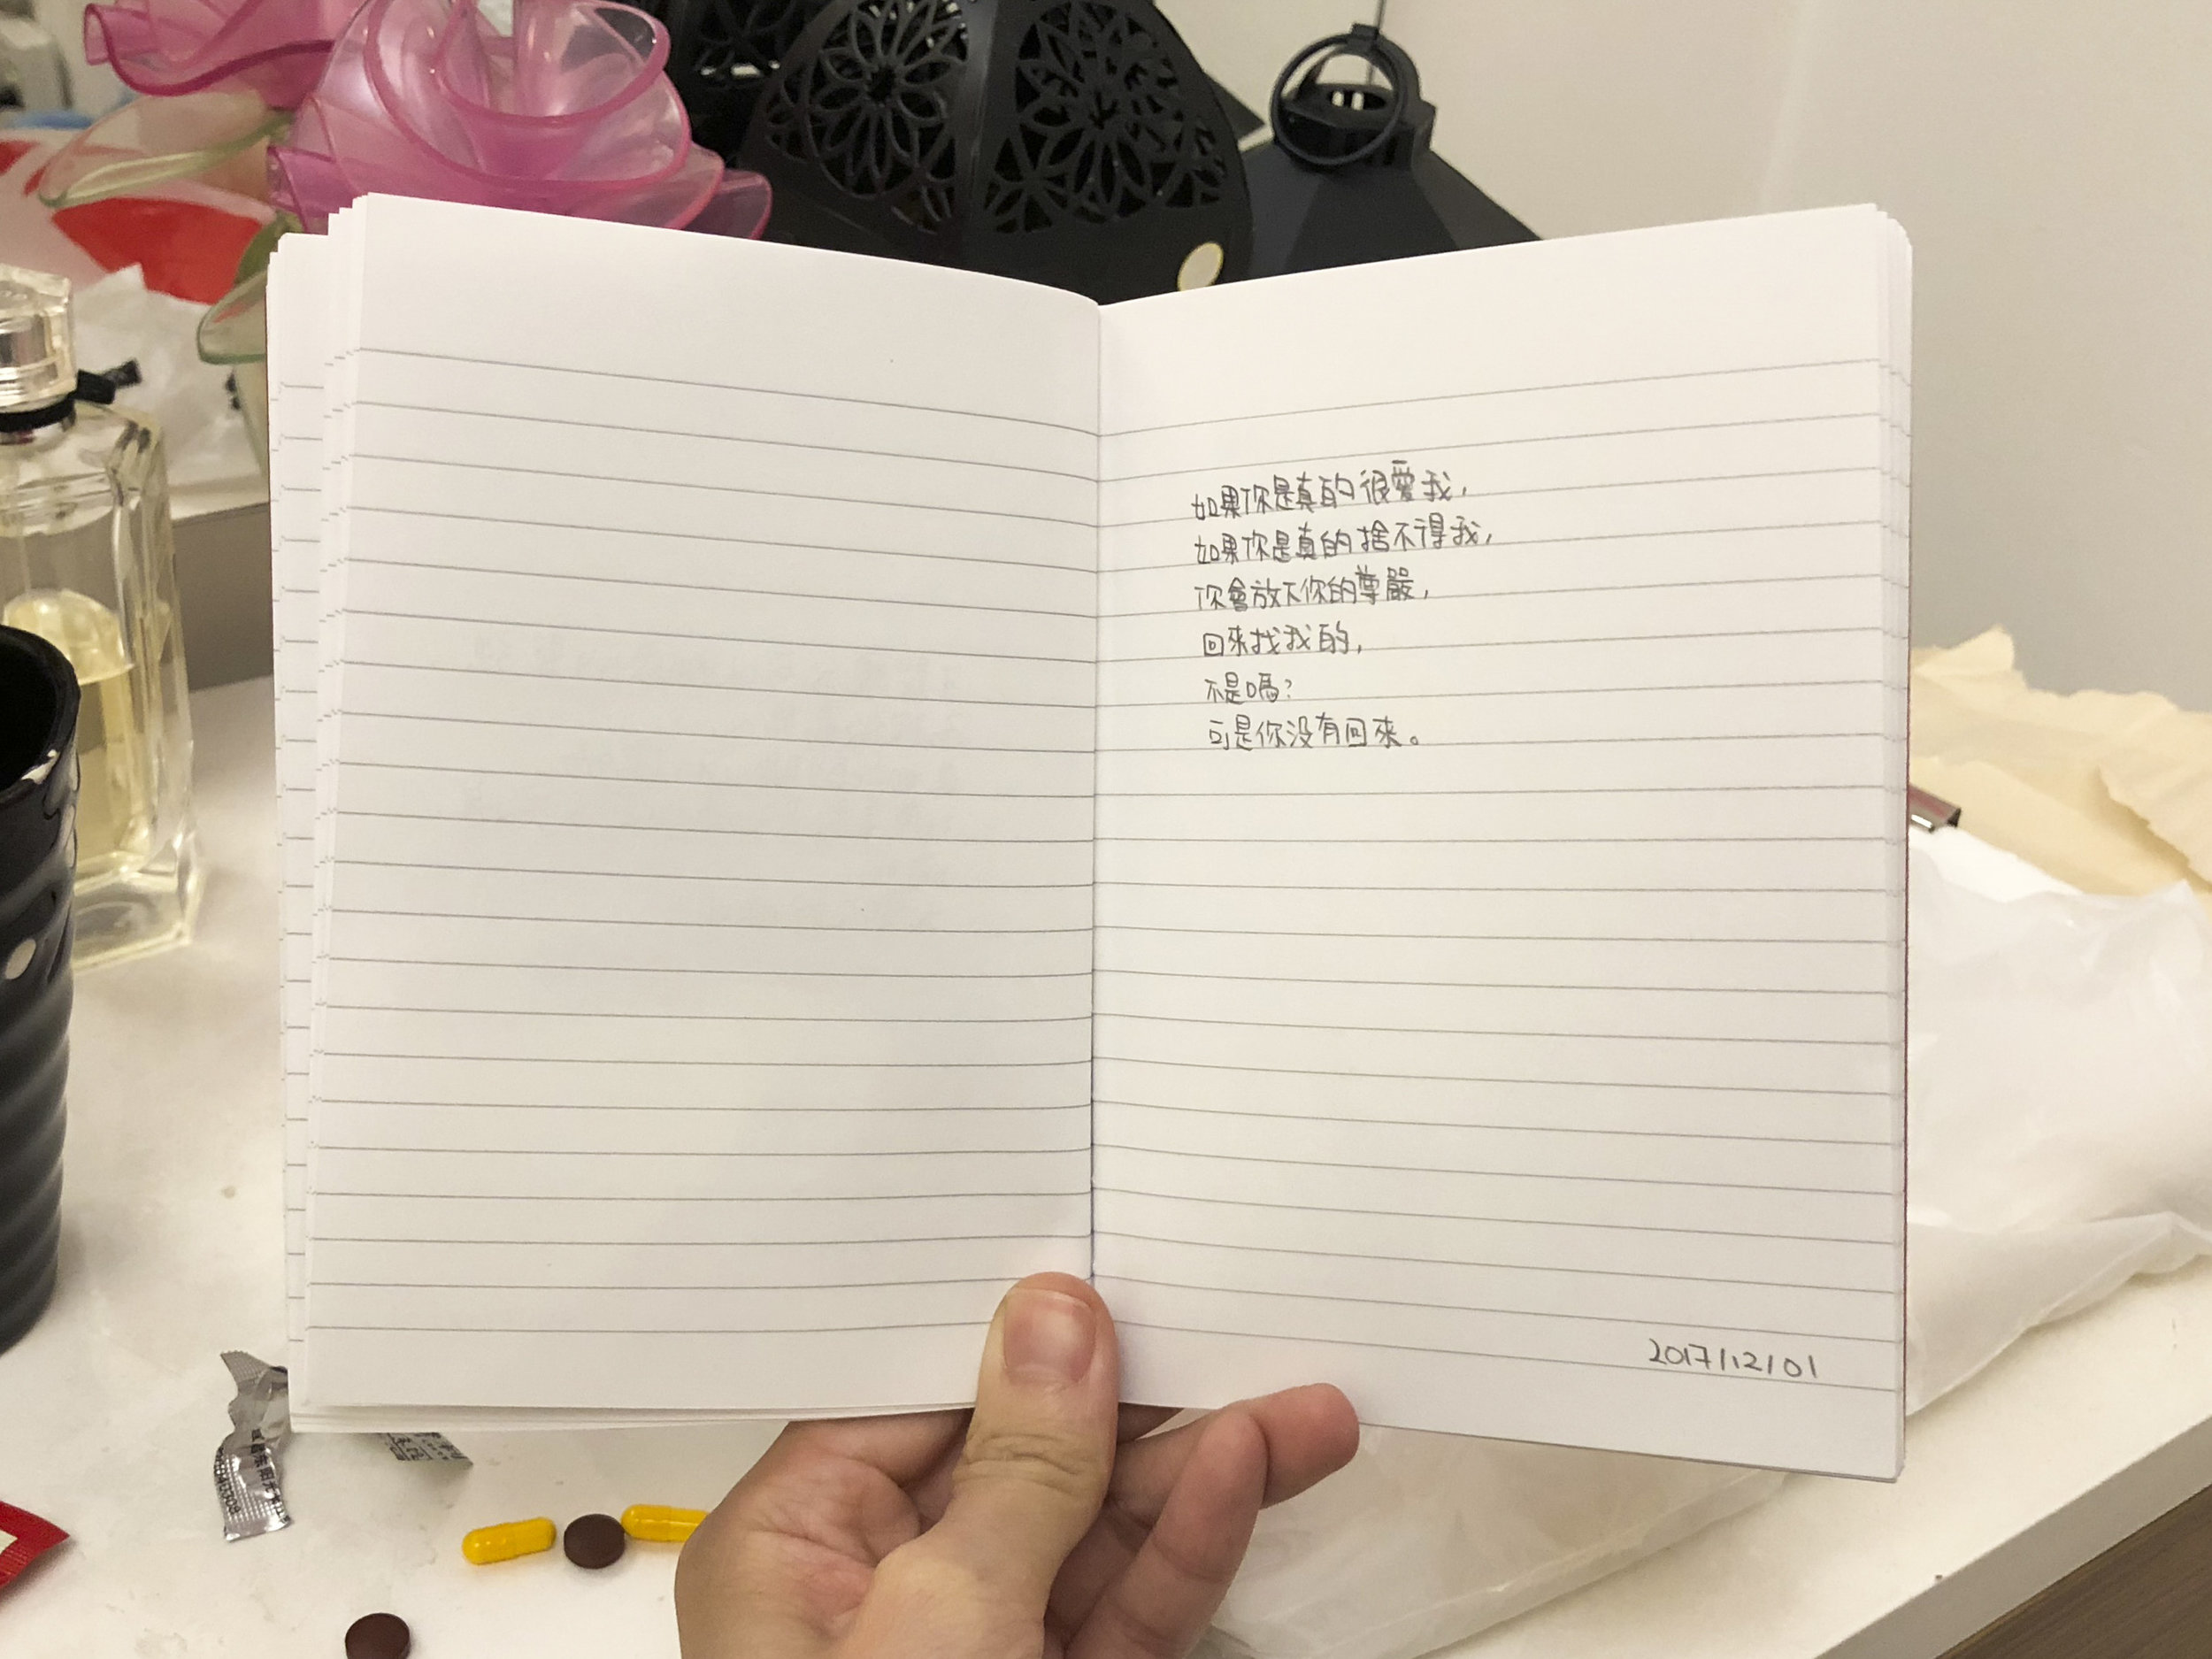 如果你是真的很愛我，
如果你是真的捨不得我，
你會放下你的尊嚴，
回來找我的，
不是嗎？
可是你没有回來。
2017/12/01